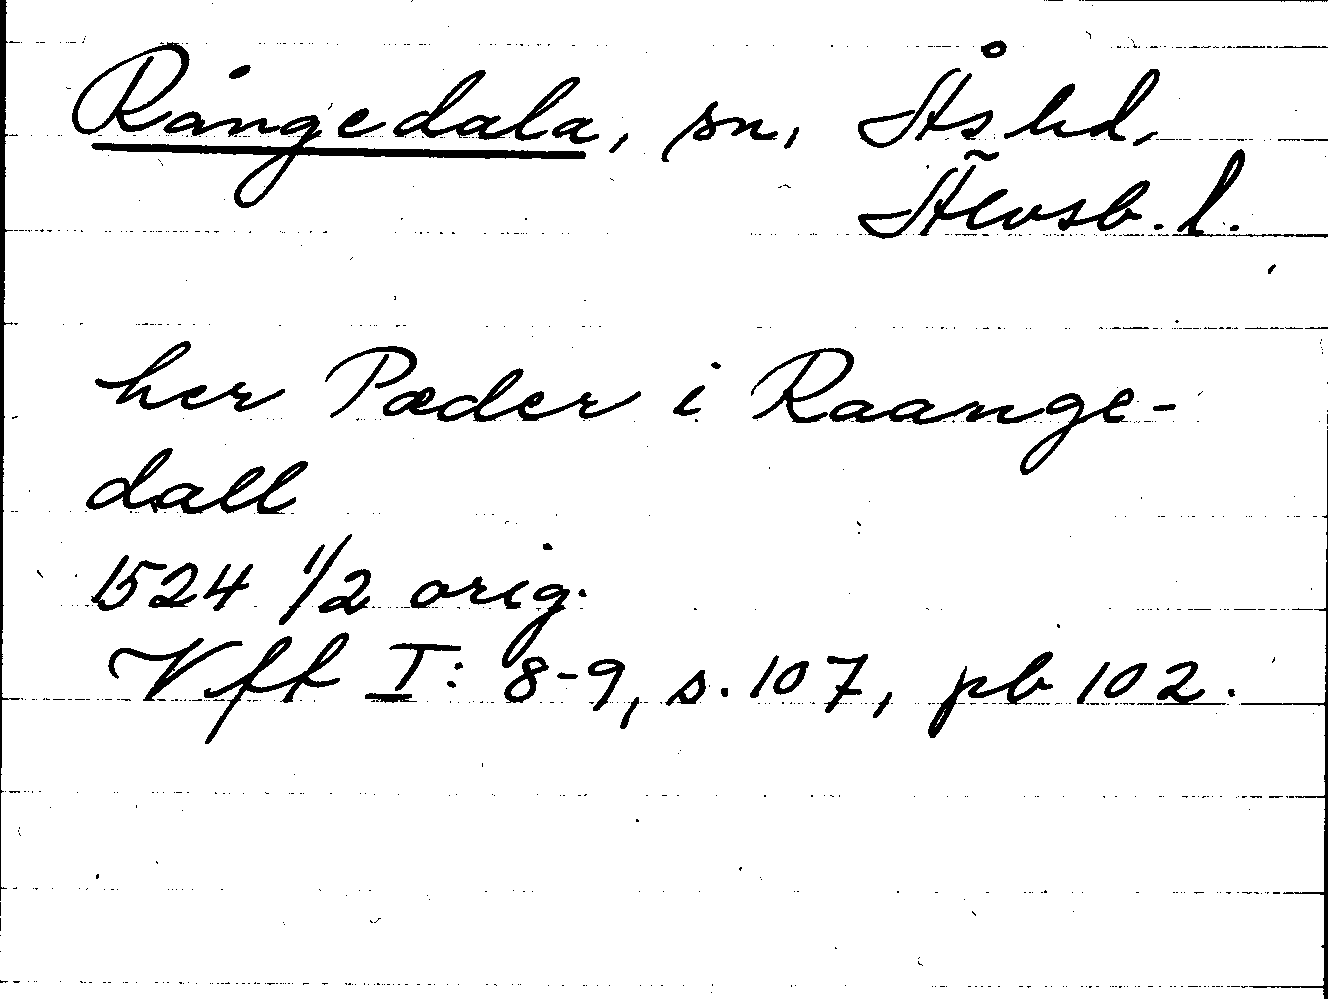 Rångedala, sn, Ås hd,
Älvsb. l.
her Pæder i Raange-
dall
1524 1/2 orig.
Vfft I: 8-9, s. 107, pb 102.